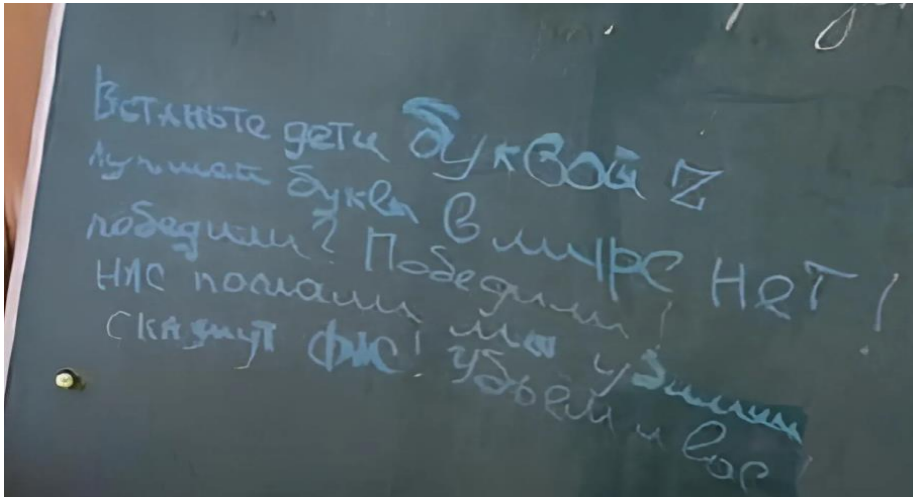 Встаньте дети буквой Z
лучшей буквы в мире нет!
победили? Победили!
нас послали мы убили
скажут фас! Убьём и вас!